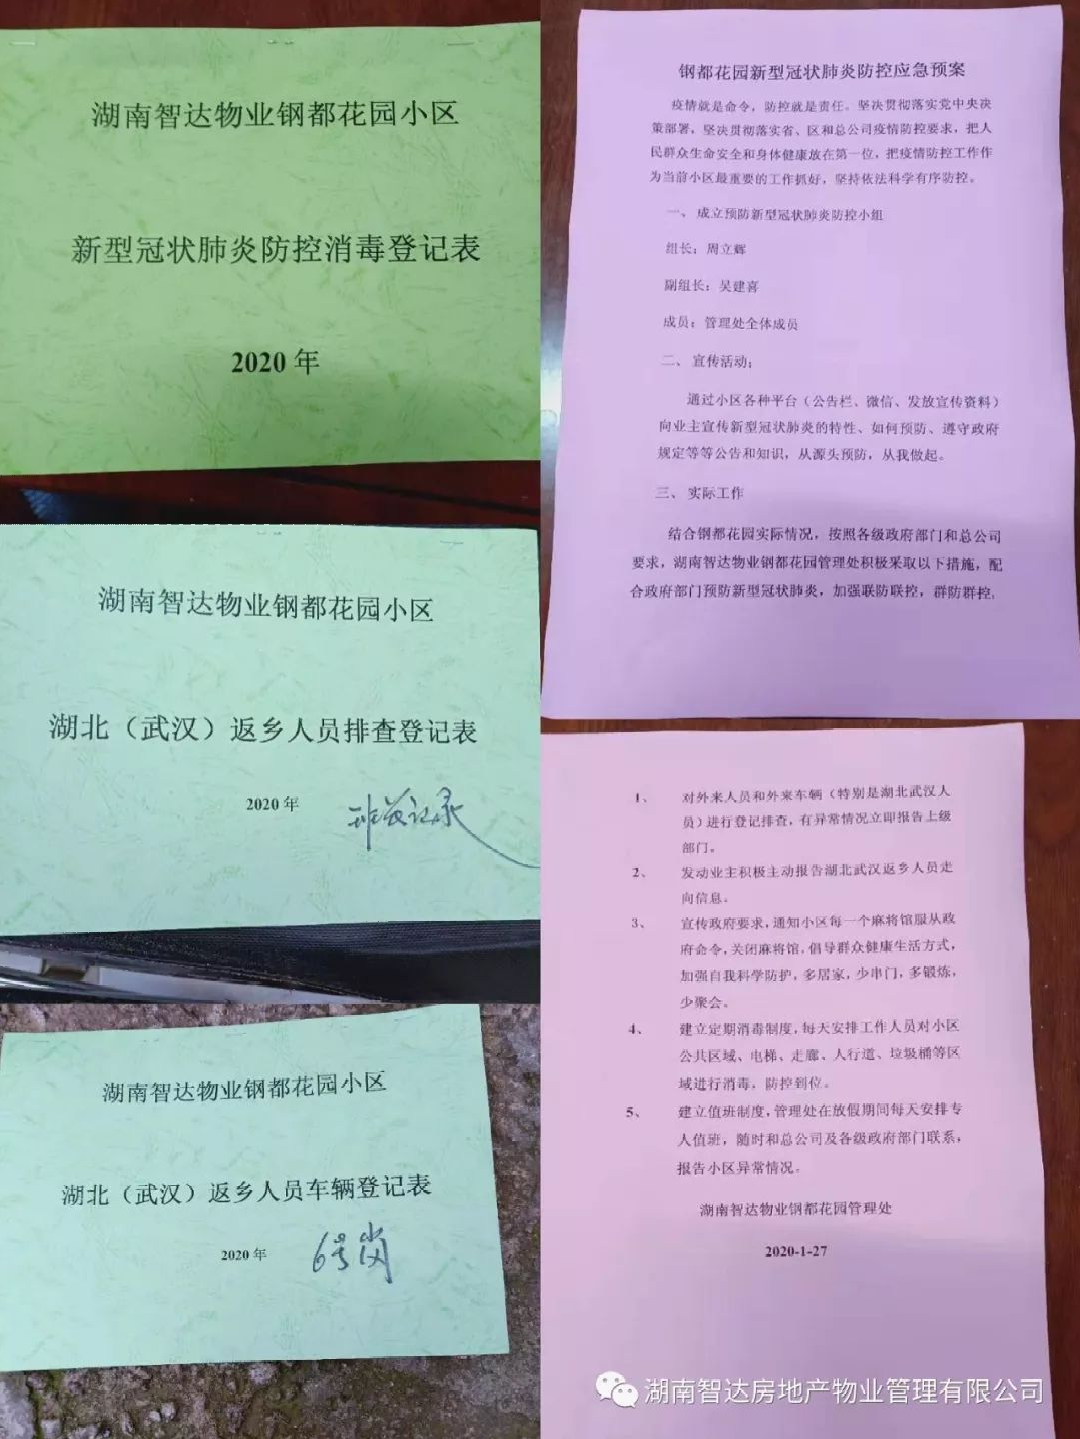 湖南智达物业钢都花园小区
新型冠状肺炎防控消毒登记表
2020 年
湖南智达物业钢都花园小区
湖北（武汉）返乡人员排查登记表
2020 年
湖南智达物业钢都花园小区
湖北（武汉）返乡人员车辆登记表
2020 年
6号岗
钢都花园新型冠状肺炎防控应急预案
疫情就是命令，防控就是责任。坚决贯彻落实党中央决
策部署，坚决贯彻落实省、区和总公司疫情防控要求，把人
民群众生命安全和身体健康放在第一位，把疫情防控工作作
为当前小区最重要的工作抓好，坚持依法科学有序防控。
一、 成立预防新型冠状肺炎防控小组
组长：周立辉
副组长：吴建喜
成员：管理处全体成员
二、 宣传活动；
通过小区各种平台（公告栏、微信、发放宣传资料）
向业主宣传新型冠状肺炎的特性、如何预防、遵守政府
规定等等公告和知识，从源头预防，从我做起。
三、 实际工作
结合钢都花园实际情况，按照各级政府部门和总公司
要求，湖南智达物业钢都花园管理处积极采取以下措施，配
合政府部门预防新型冠状肺炎，加强联防联控，群防群控.
1、 对外来人员和外来车辆（特别是湖北武汉人
员）进行登记排查，有异常情况立即报告上级
部门。
2、 发动业主积极主动报告湖北武汉返乡人员走
向信息。
3、 宣传政府要求，通知小区每一个麻将馆服从政
府命令，关闭麻将馆，倡导群众健康生活方式，
加强自我科学防护，多居家，少串门，多锻炼，
少聚会。
4、 建立定期消毒制度，每天安排工作人员对小区
公共区域、电梯、走廊、人行道、垃圾桶等区
域进行消毒，防控到位。
5、 建立值班制度，管理处在放假期间每天安排专
人值班，随时和总公司及各级政府部门联系，
报告小区异常情况。
湖南智达物业钢都花园管理处
2020-1-27
湖南智达房地产物业管理有限公司